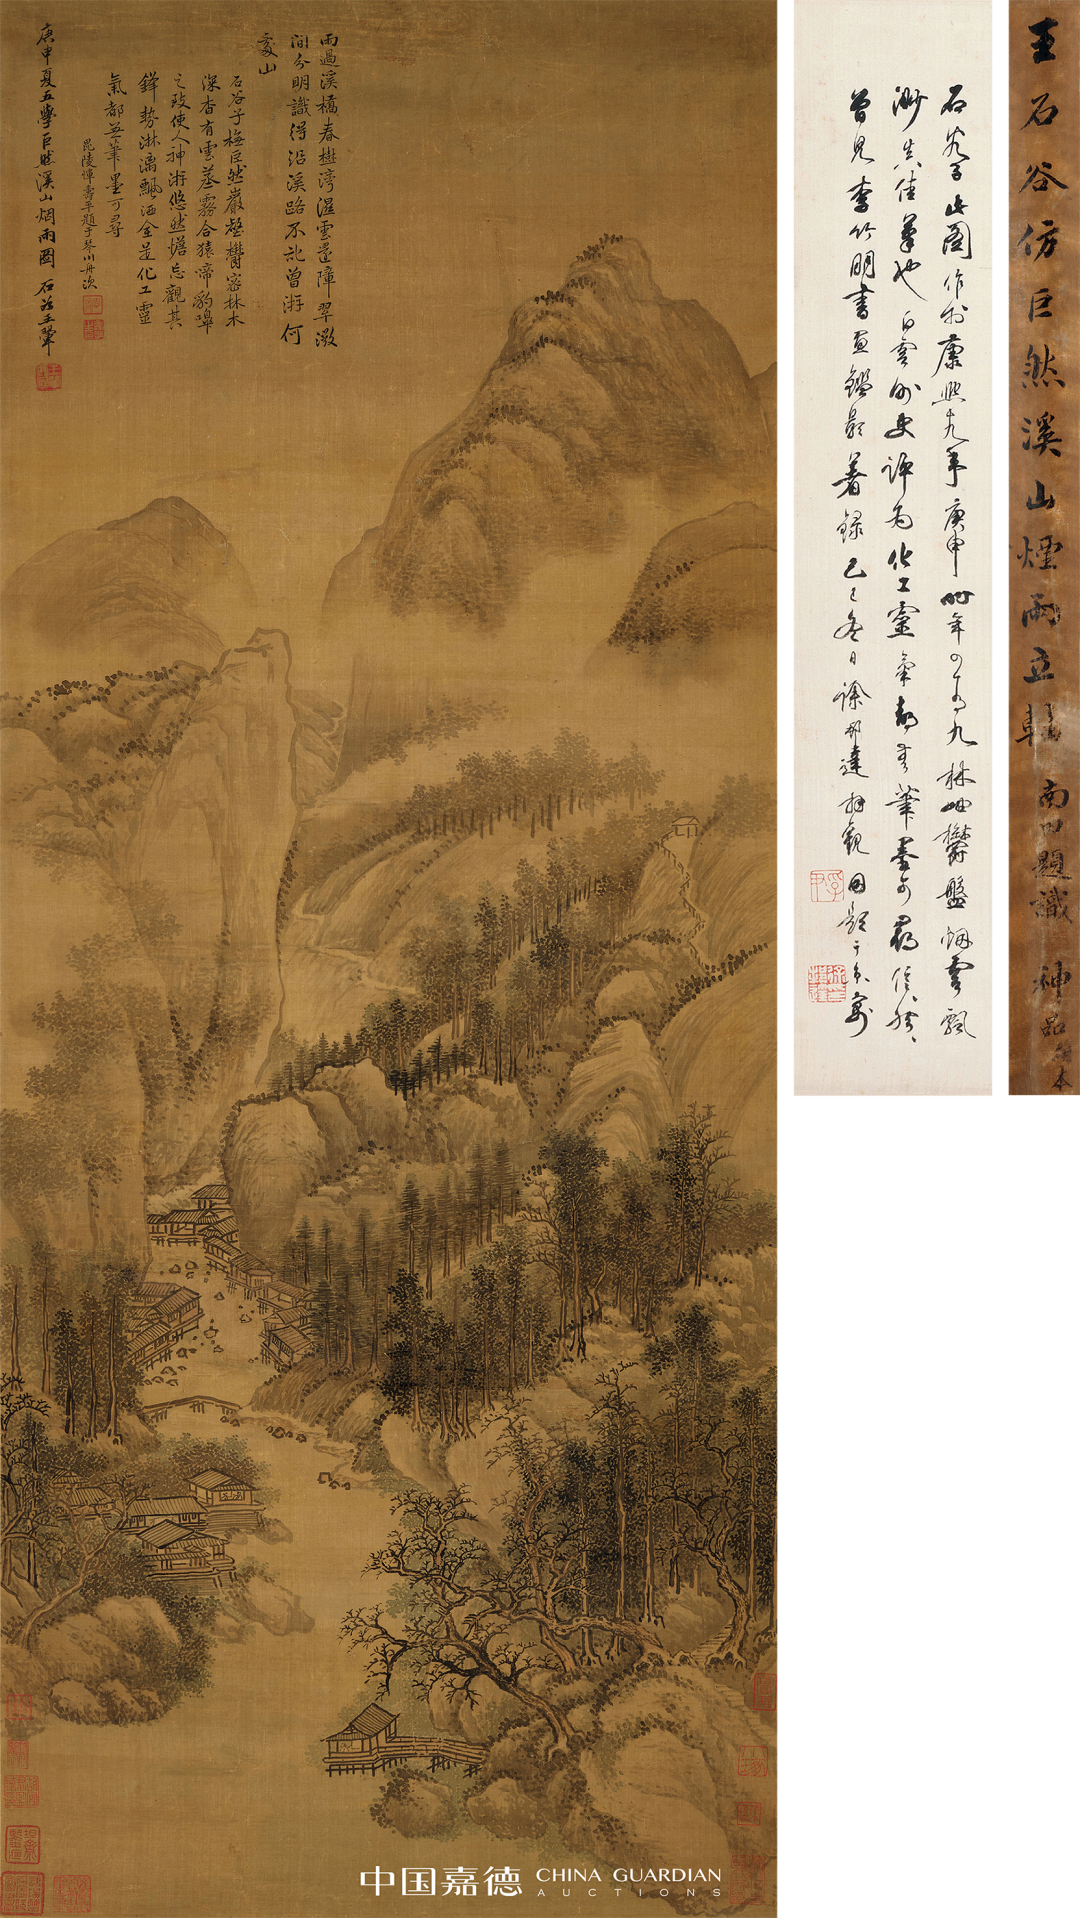 雨過溪橋春樹灣溼雲還障翠微
間分明識得沿溪路不記曾游何
處山
石谷子橅巨然巖壑欝密林木
深杳有雲蒸霧合猿啼豹嘷
之致使人神游悠然憺忘觀其
鋒勢淋漓飄洒全是化工靈
氣都無筆墨可尋
毘陵惲壽平題于琴川舟次
庚申夏五學巨然溪山烟雨圖 石谷王翬
石谷子此圖作於康熙十九年庚申時年四十有九林岫欝盤烟雲飄
渺真佳筆也白雲外史評為化工靈氣都無筆墨可尋信然
曾見李竹朋書畫鑑影著錄己巳冬日徐邦達拜觀因題于京寓
王石谷仿巨然溪山煙雨立軸 南田題識 神品 絹本
中国嘉德 CHINA GUARDIAN
AUCTIONS